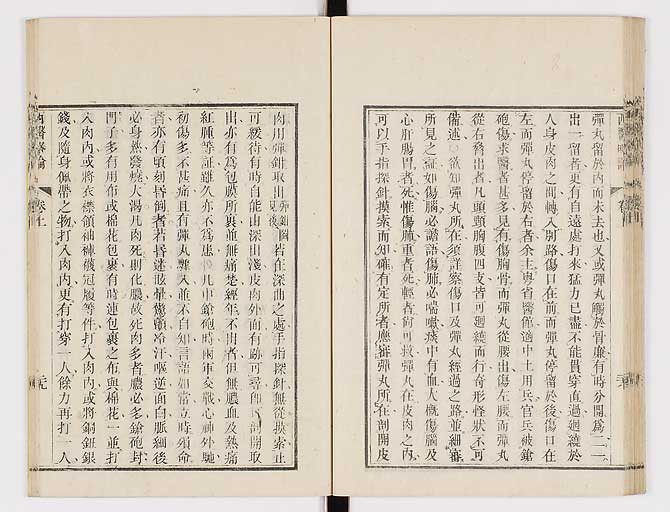 彈丸留於內而未去也又或彈丸觸於骨廉有時分開爲二一
出一留者更有自遠處打來猛力已盡不能貫穿直過廻繞於
人身皮肉之間轉入別路傷口在前而彈丸停留於後傷口在
左而彈丸停留於右者余主粵省醫館適中土用兵官兵被鎗
砲傷求醫者甚多見有傷胸骨而彈丸從腰出傷左腰而彈丸
從右脅出者凡頭頸胸腹四支皆可廻繞而行奇形怪狀不可
備述欲知彈丸所在須詳察傷口及彈丸經過之路並細審
所見之証如傷腦必譫語傷肺必喘嗽痰中有血大概傷腦及
心肝腸胃者死惟傷肺重者死輕者尙可救彈丸在皮肉之內
可以手指探針摸索而知確有定所者應審彈丸所在剖開皮
肉用彈鉗取出彈鉗圖見後若在深曲之處手指探針無從摸索止
可緩待有時自能由深出淺皮肉外面有跡可尋卽剖開取
出亦有爲包膜所裹並無痛楚經年不出者但無膿血及熱痛
紅腫等証雖久亦不爲患凡中鎗砲時兩軍交戰心神外馳
初傷多不甚痛且有彈丸擊入並不自知言語如常立時殞命
者亦有頃刻昏
者若昏迷戰
驚顫冷汗嘔逆面白脈細後
必身熱發燒大渴凡肉死則化膿故死肉多者膿必多鎗砲封
門子多有用布或棉花包裹有時連包裹之布與棉花一並打
入肉內或將衣襟領袖褲襪冠履等件打入肉內或將銅鈕銀
錢及隨身佩帶之物打入肉內更有打穿一人餘力再打一人
西醫畧論
卷上